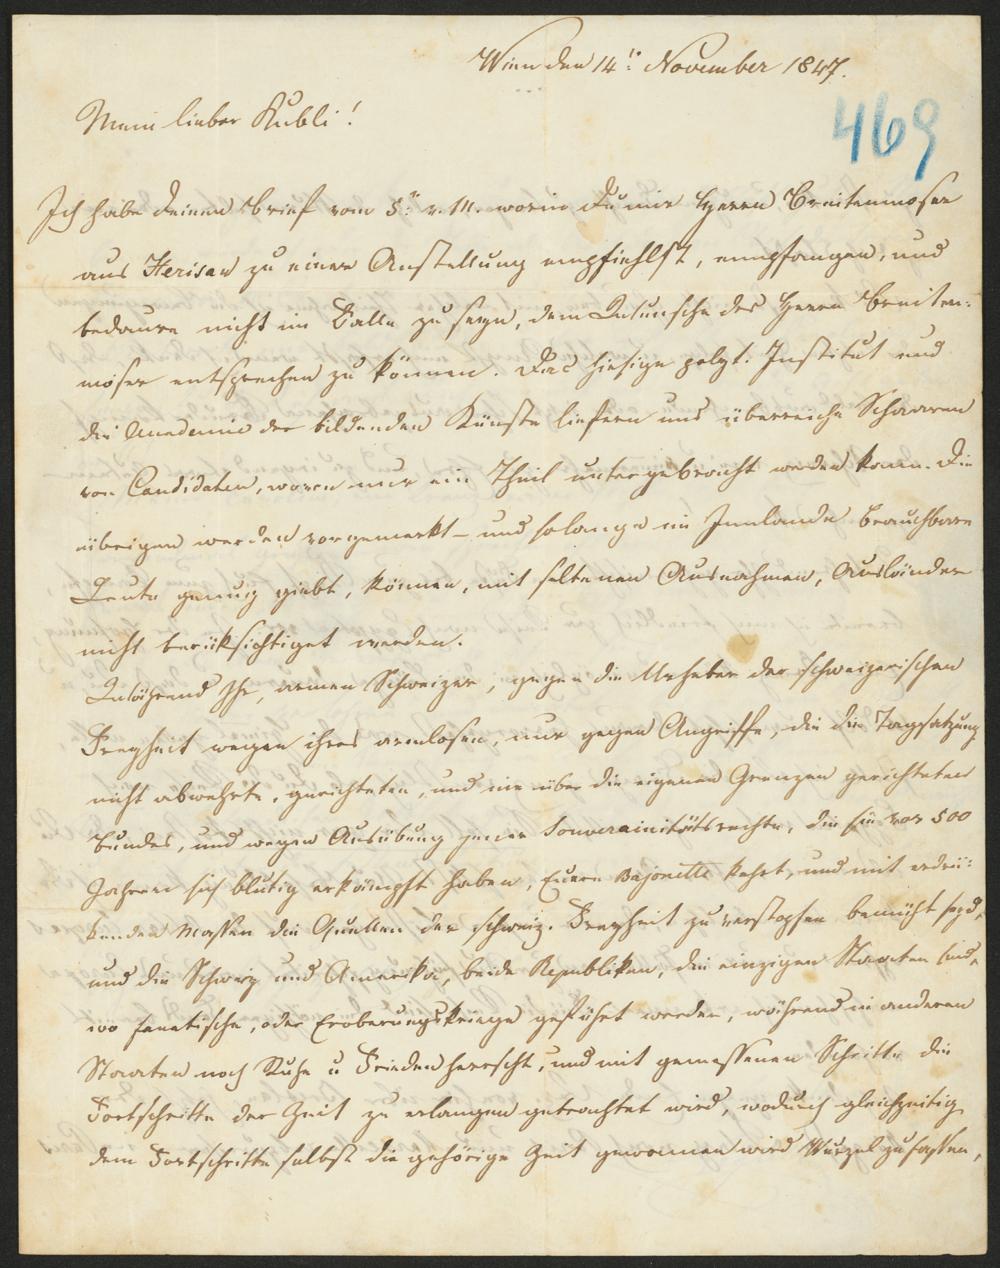 Wien den 14ten November 1847.
469
Mein lieber Kubli!
Ich habe Deinen Brief vom 5ten v. M. worin Du mir Herrn Breitenmoser
aus Herisau zu einer Anstellung empfiehlst, empfangen, und
bedaure nicht im Falle zu seyn, dem Wunsche des Herrn Breiten-
moser entsprechen zu können. Das hiesige polyt. Institut und
die Academie der bildenden Künste liefern uns überreiche Schaaren
von Candidaten, wovon nur ein Theil untergebracht werden kann. Die
übrigen werden vorgemerkt – und solange im Innlande brauchbare
Leute genug giebt, können, mit seltenen Ausnahmen, Ausländer
nicht berüksichtiget werden.
Während Ihr, armen Schweizer, gegen die Urheber der schweizerischen
Freyheit wegen ihres armlosen, nur gegen Angriffe, die die Tagsatzung
nicht abwehrte, gerichteten, und nie über die eigenen Grenzen gerichteten
Bundes, und wegen Ausübung jener Souverainitätsrechte, die sie vor 500
Jahren sich blutig erkämpft haben, Euere Bajonette kehrt, und mit erdrü-
kenden Massen die Quellen der schweiz. Freyheit zu verstopfen bemüht seyd,
und die Schweiz und Amerika, beide Republiken, die einzigen Staaten sind,
wo fanatische, oder Eroberungskriege geführt werden, während in anderen
Staaten noch Ruhe u Frieden herrscht, und mit gemessenen Schritte die
Fortschritte der Zeit zu erlangen getrachtet wird, wodurch gleichzeitig
dem Fortschritte selbst die gehörige Zeit gewonnen wird Wurzel zu fassen,